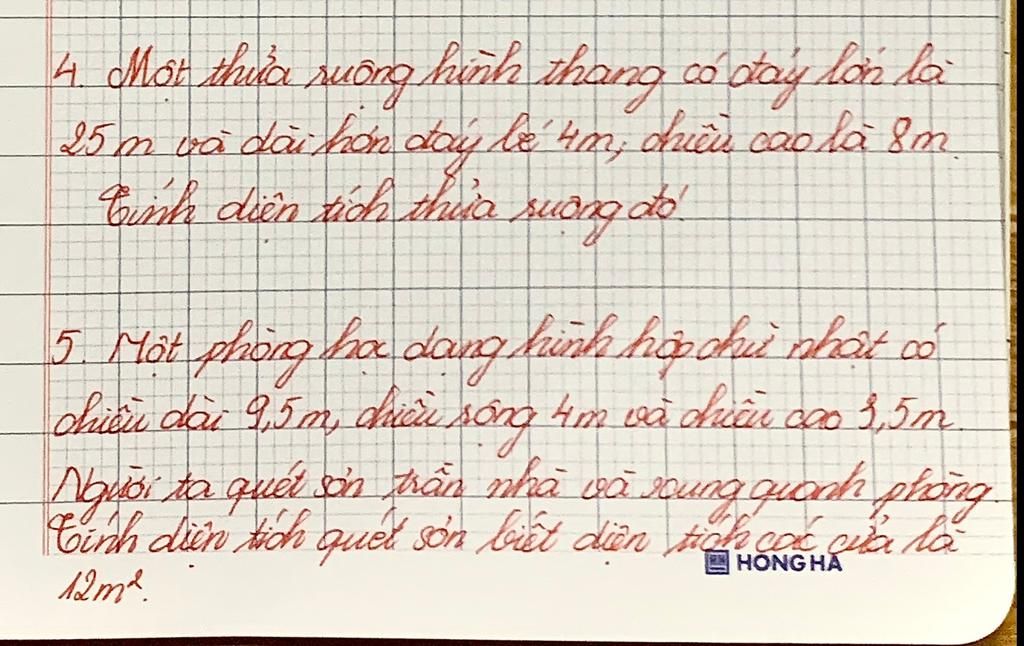 4. Một thửa ruộng hình thang có đáy lớn là
25m và dài hơn đáy bé 4m, chiều cao là 8m
Tính diện tích thửa ruộng đó
5. Một phòng học dạng hình hộp chữ nhật có
chiều dài 9,5m, chiều rộng 4m và chiều cao 3,5m.
Người ta quét sơn trần nhà và xung quanh phòng.
Tính diện tích quét sơn biết diện tích các cửa là
HONG HA
12m².